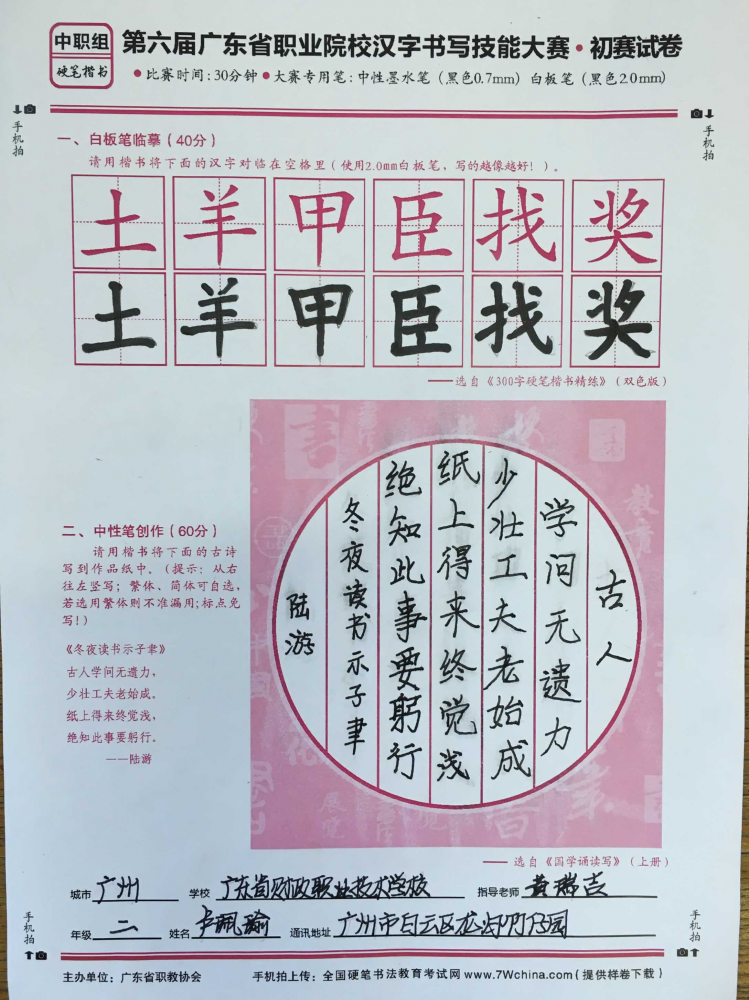 中职组
硬笔楷书
第六届广东省职业院校汉字书写技能大赛·初赛试卷
●比赛时间:30分钟●大赛专用笔:中性墨水笔(黑色0.7mm) 白板笔(黑色2.0mm)
手机拍
手机拍
一、白板笔临摹(40分)
请用楷书将下面的汉字对临在空格里(使用2.0mm白板笔、写的越像越好!)。
土羊甲臣找奖
土羊甲臣找奖
——选自《300字硬笔楷书精练》(双色版)
二、中性笔创作(60分)
请用楷书将下面的古诗
写到作品纸中。(提示:从右
往左竖写;繁体、简体可自选,
若选用繁体则不准漏用;标点免
写!)
《冬夜读书示子聿》
古人学问无遗力,
少壮工夫老始成。
纸上得来终觉浅,
绝知此事要躬行。
——陆游
古人
学问无遗力
少壮工夫老始成
纸上得来终觉浅
绝知此事要躬行
冬夜读书示子聿
陆游
——选自《国学诵读写》(上册)
城市 广州 学校 广东省财政职业技术学校 指导老师 黄瑞吉
年级 二 姓名 卢珮瑜 通讯地址 广州市白云区龙
手机拍
手机拍
主办单位:广东省职教协会 手机拍上传:全国硬笔书法教育考试网 www.7Wchina.com(提供样卷下载)